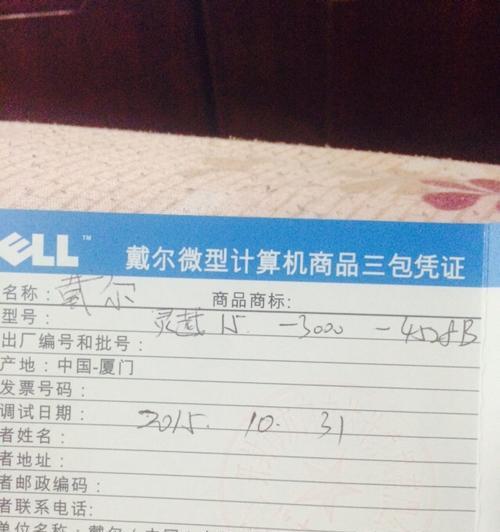 ELL™
戴尔微型计算机商品三包凭证
名称：戴尔 商品商标:
型号： 灵越 15 -3000 -4528B
出厂编号和批号：
产地：中国-厦门
发票号码：
调试日期： 2015. 10. 31
者姓名：
者地址：
者邮政编码：
者联系电话:
单位名称：戴尔（中国）